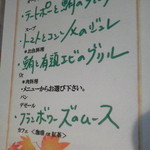 テートポーと鮪の
スープ
トマトとコンソメのジュレ
*お魚料理
鮪と有頭エビのグリル
*肉料理
・メニューからお選び下さい。
パン
デセール
フランボワーズのムース
カフェ <珈琲 or 紅茶>